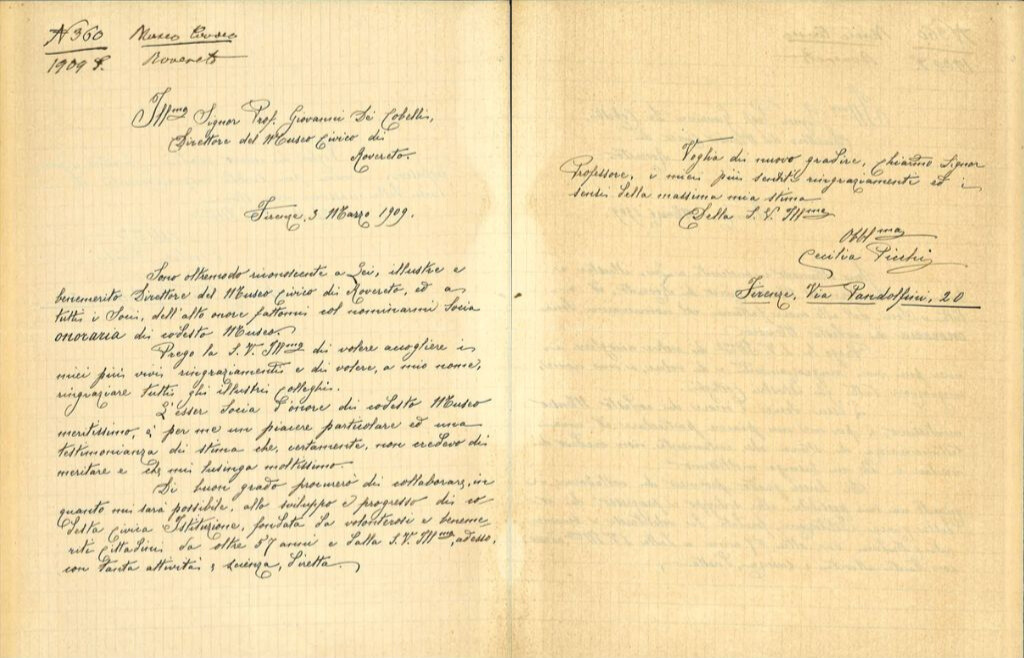 N 360 Museo Civico
1909 P. Rovereto
Ill.mo Signor Prof. Giovanni De Cobelli,
Direttore del Museo Civico di
Rovereto.
Firenze, 3 Marzo 1909.
Sono oltremodo riconoscente a Lei, illustre e
benemerito Direttore del Museo Civico di Rovereto, ed a
tutti i Soci, dell'alto onore fattomi col nominarmi Socia
onoraria di codesto Museo.
Prego la S. V. Ill.ma di volere accogliere i
miei più vivi ringraziamenti e di volere, a mio nome,
ringraziare tutti gli illustri Colleghi.
L'esser Socia d'onore di codesto Museo
meritissimo, è per me un piacere particolare ed una
testimonianza di stima che, certamente, non credevo di
meritare e che mi lusinga moltissimo.
Di buon grado procurerò di collaborare, in
quanto mi sarà possibile, allo sviluppo e progresso di co
desta Civica Istituzione, fondata da volonterosi e beneme
riti Cittadini da oltre 57 anni e dalla S. V. Ill.ma, adesso,
con tanta attività e scienza, diretta.
Voglia di nuovo gradire, Chiar.mo Signor
Professore, i miei più sentiti ringraziamenti ed i
sensi della massima mia stima
Della S. V. Ill.ma
Obbl.ma
Cecilia Picchi
Firenze, Via Pandolfini, 20